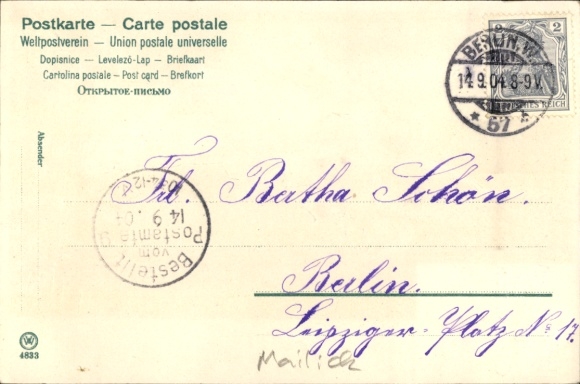 Postkarte — Carte postale
Weltpostverein — Union postale universelle
Dopisnice — Levelező-Lap — Briefkaart
Cartolina postale — Post card — Brefkort
Открытое-письмо
Absender
2
BERLIN. W.
14.9.04.8-9V.
* 67 *
REICH
Bestellt
vom
Postamte
14 9. 04
Frl. Bertha Schön.
Berlin.
Leipziger-Platz No 17.
Mailick
W
4833